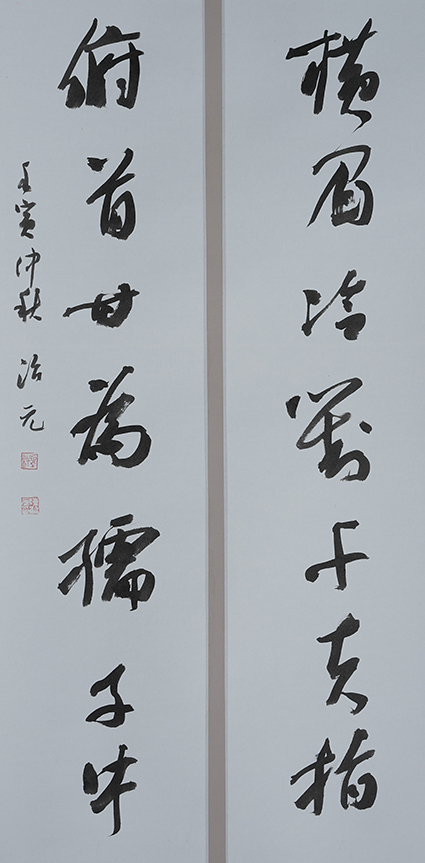 橫眉冷對千夫指
俯首甘為孺子牛
壬寅仲秋 治元